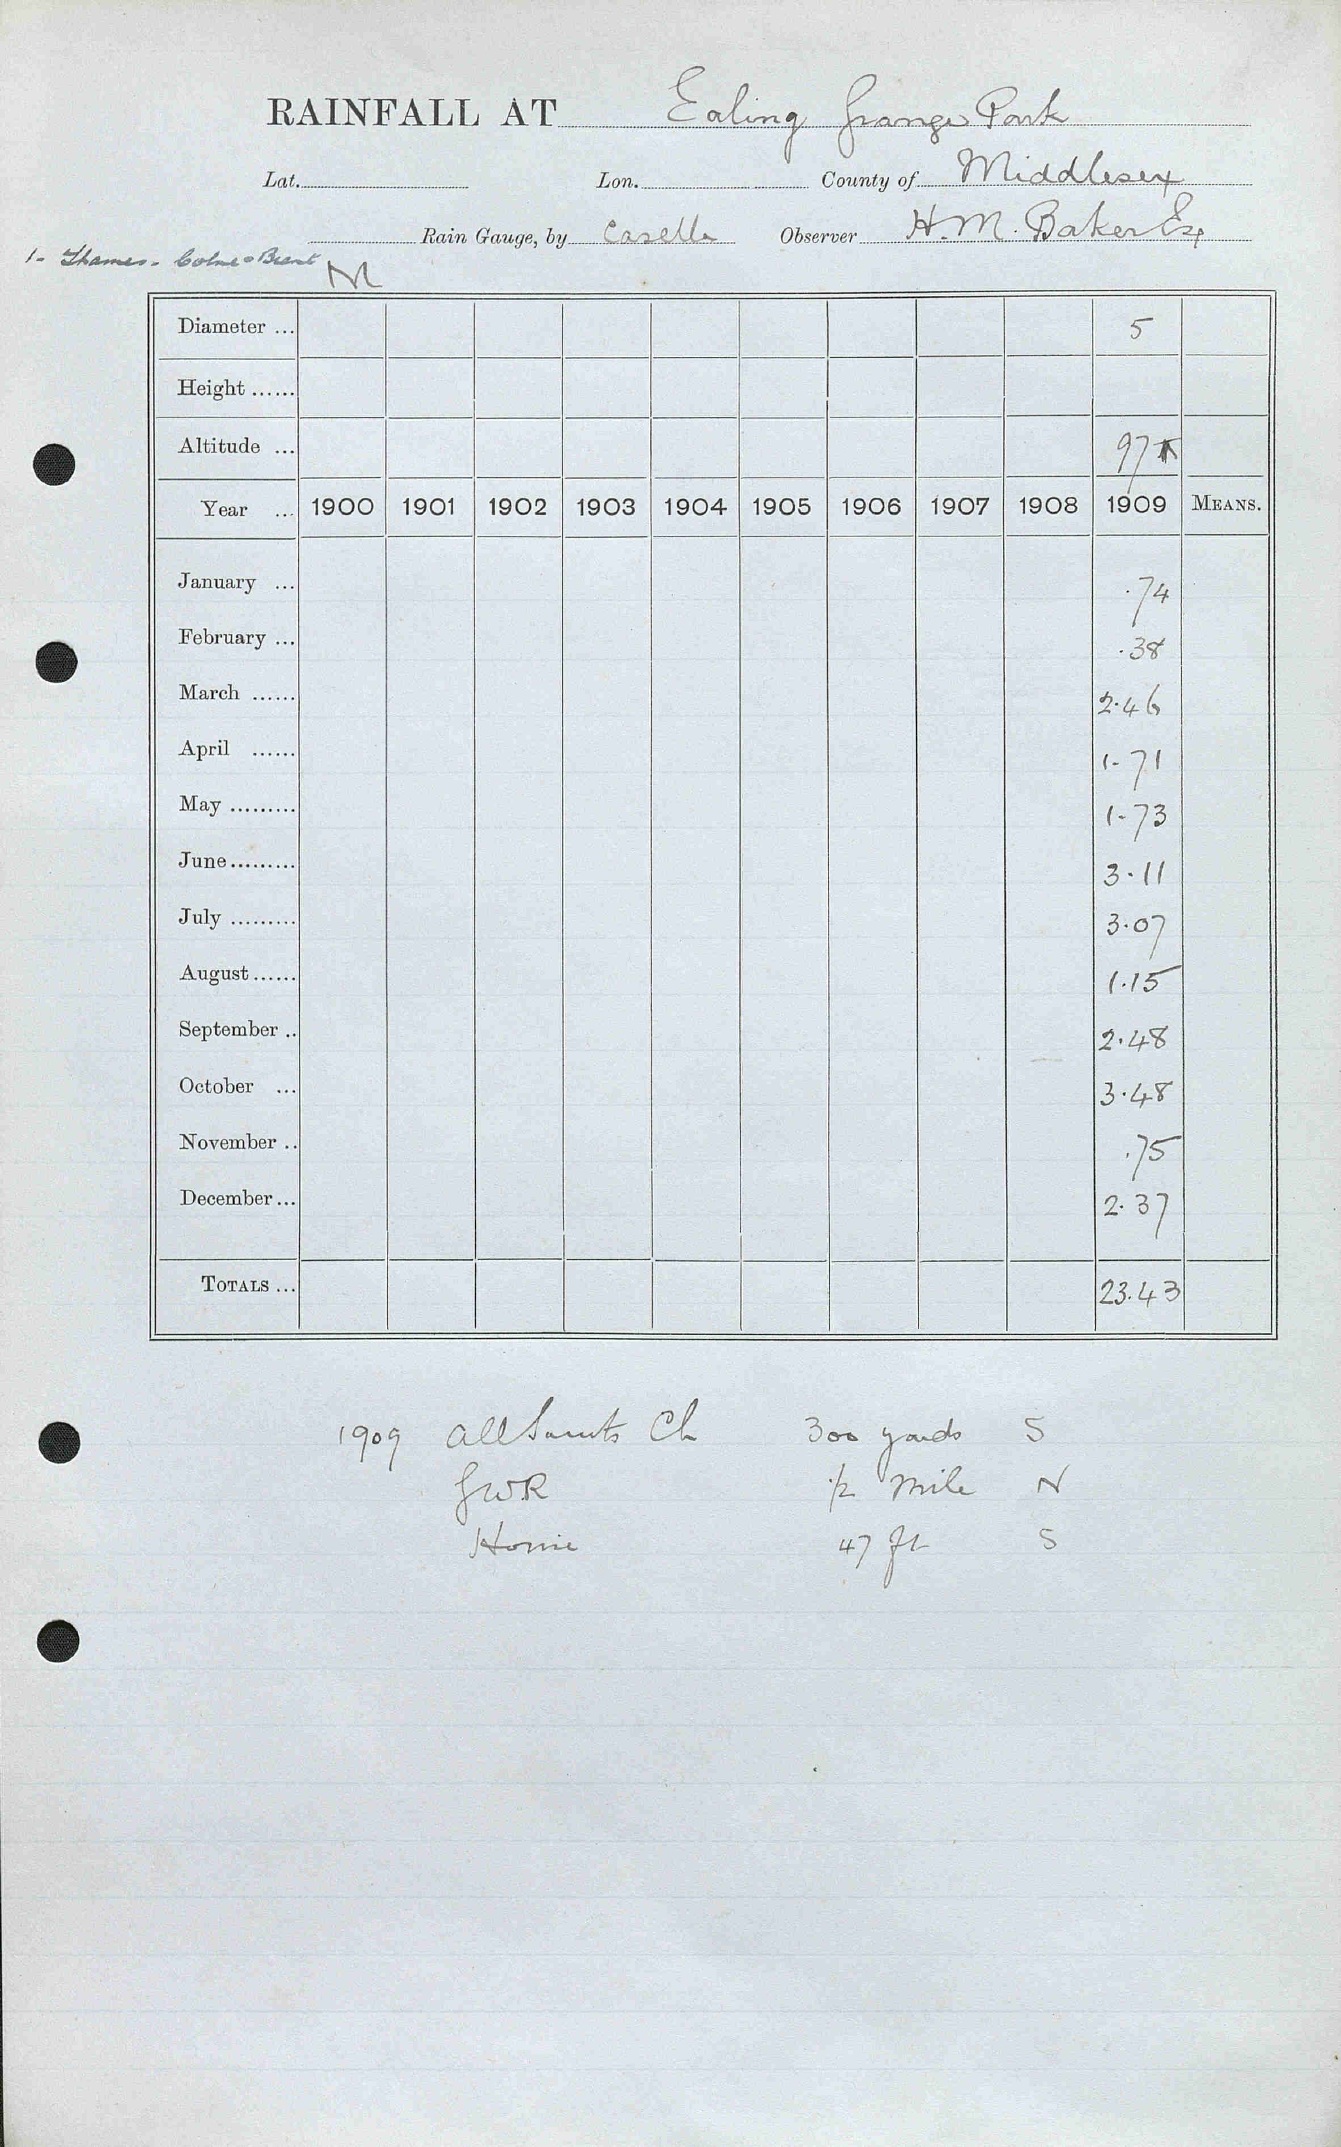 RAINFALL AT Ealing Grange Park
Lat. Lon. County of Middlesex
Rain Gauge, by Casella Observer H. M. Baker Esq
1- Thames - Colne & Brent
M
Diameter ... 5
Height ......
Altitude ... 97
Year ... 1900 1901 1902 1903 1904 1905 1906 1907 1908 1909 MEANS.
January ... .74
February ... .38
March ...... 2.46
April ...... 1.71
May ......... 1.73
June ......... 3.11
July ......... 3.07
August ...... 1.15
September .. 2.48
October ... 3.48
November .. .75
December ... 2.37
TOTALS ... 23.43
1909 All Saints Ch 300 yards S
GWR 1/2 Mile N
Home 47 ft S